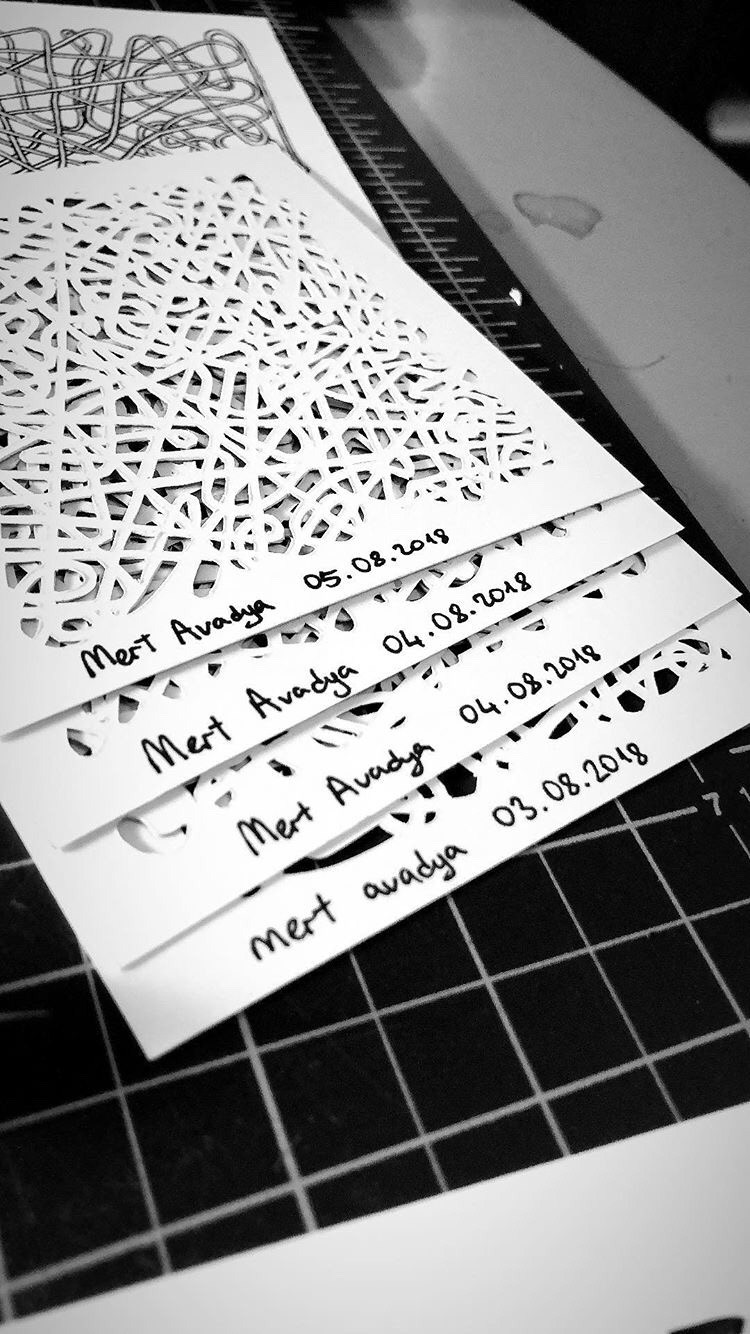 Mert Avadya 05.08.2018
Mert Avadya 04.08.2018
Mert Avadya 04.08.2018
mert avadya 03.08.2018
7